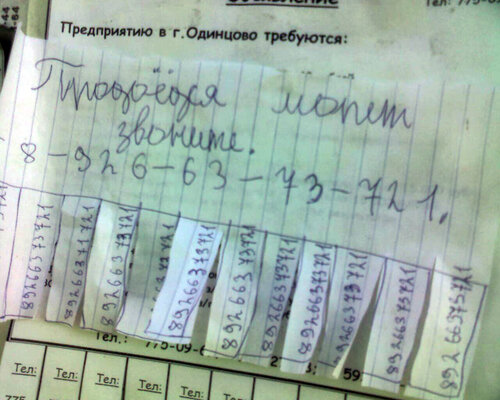 Объявление
Тел: 775-0
Предприятию в г.Одинцово требуются:
Продоётся мопет
звоните.
8-926-63-73-721.
89266373721
89266373721
89266373721
89266373721
89266373721
89266373721
89266373721
89266373721
89266373721
89266373721
Тел.: 775-09-6
Тел: Тел: Тел: Тел: Тел:
775